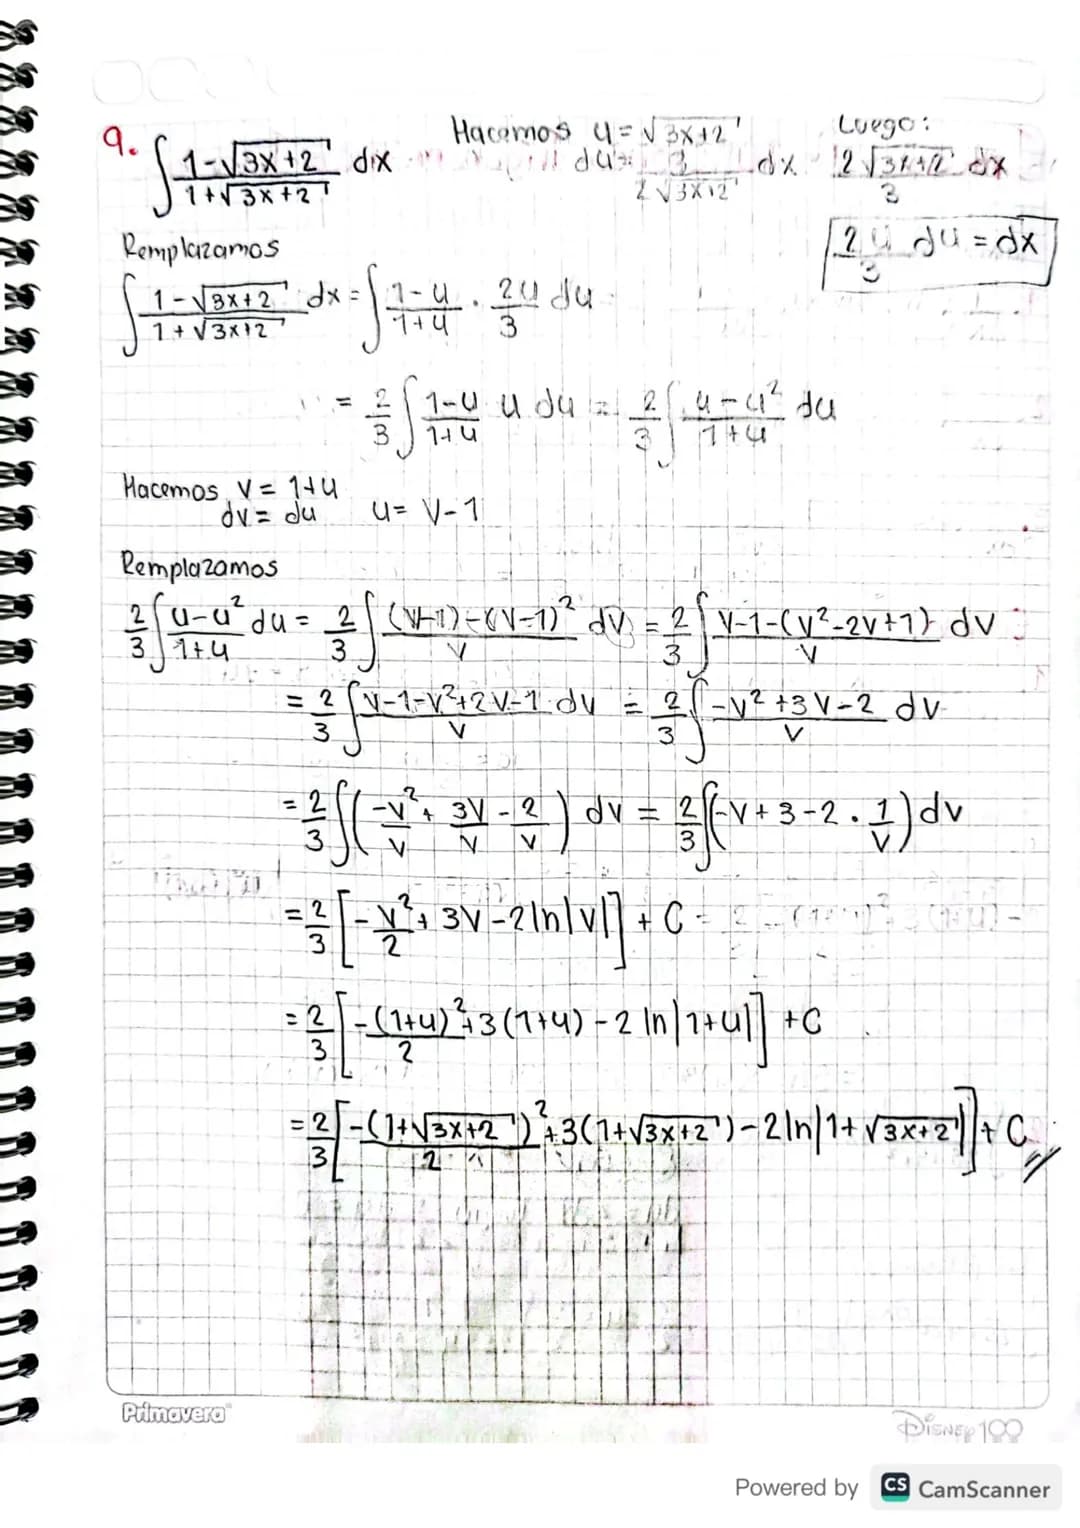 9. ∫ 1-√3x+2 / 1+√3x+2 dx Hacemos u = √3x+2 Luego:
du = 3 / 2√3x+2 dx 2√3x+2 / 3 dx
Remplazamos 2u/3 du = dx
∫ 1-√3x+2 / 1+√3x+2 dx = ∫ 1-u / 1+u · 2u/3 du
= 2/3 ∫ 1-u / 1+u u du = 2/3 ∫ u-u² / 1+u du
Hacemos v = 1+u
dv = du u = v-1
Remplazamos
2/3 ∫ u-u² / 1+u du = 2/3 ∫ (v-1)-(v-1)² / v dv = 2/3 ∫ v-1-(v²-2v+1) / v dv
= 2/3 ∫ v-1-v²+2v-1 / v dv = 2/3 ∫ -v²+3v-2 / v dv
= 2/3 ∫ (-v²/v + 3v/v - 2/v) dv = 2/3 ∫ (-v+3-2·1/v) dv
= 2/3 [-v²/2 + 3v-2ln|v|] + C
= 2/3 [-(1+u)²/2 + 3(1+u)-2 ln|1+u|] + C
= 2/3 [-(1+√3x+2)²/2 + 3(1+√3x+2)-2ln|1+√3x+2|] + C
Primavera
DISNEY 100
Powered by CS CamScanner